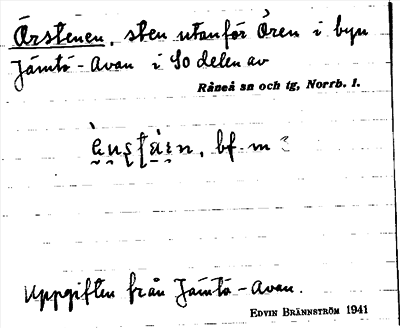 Örstenen, sten utanför Ören i byn
Jämtö-Avan i SO delen av
Råneå sn och tg, Norrb. l.
bf. m
Uppgiften från Jämtö-Avan.
EDVIN BRÄNNSTRÖM 1941